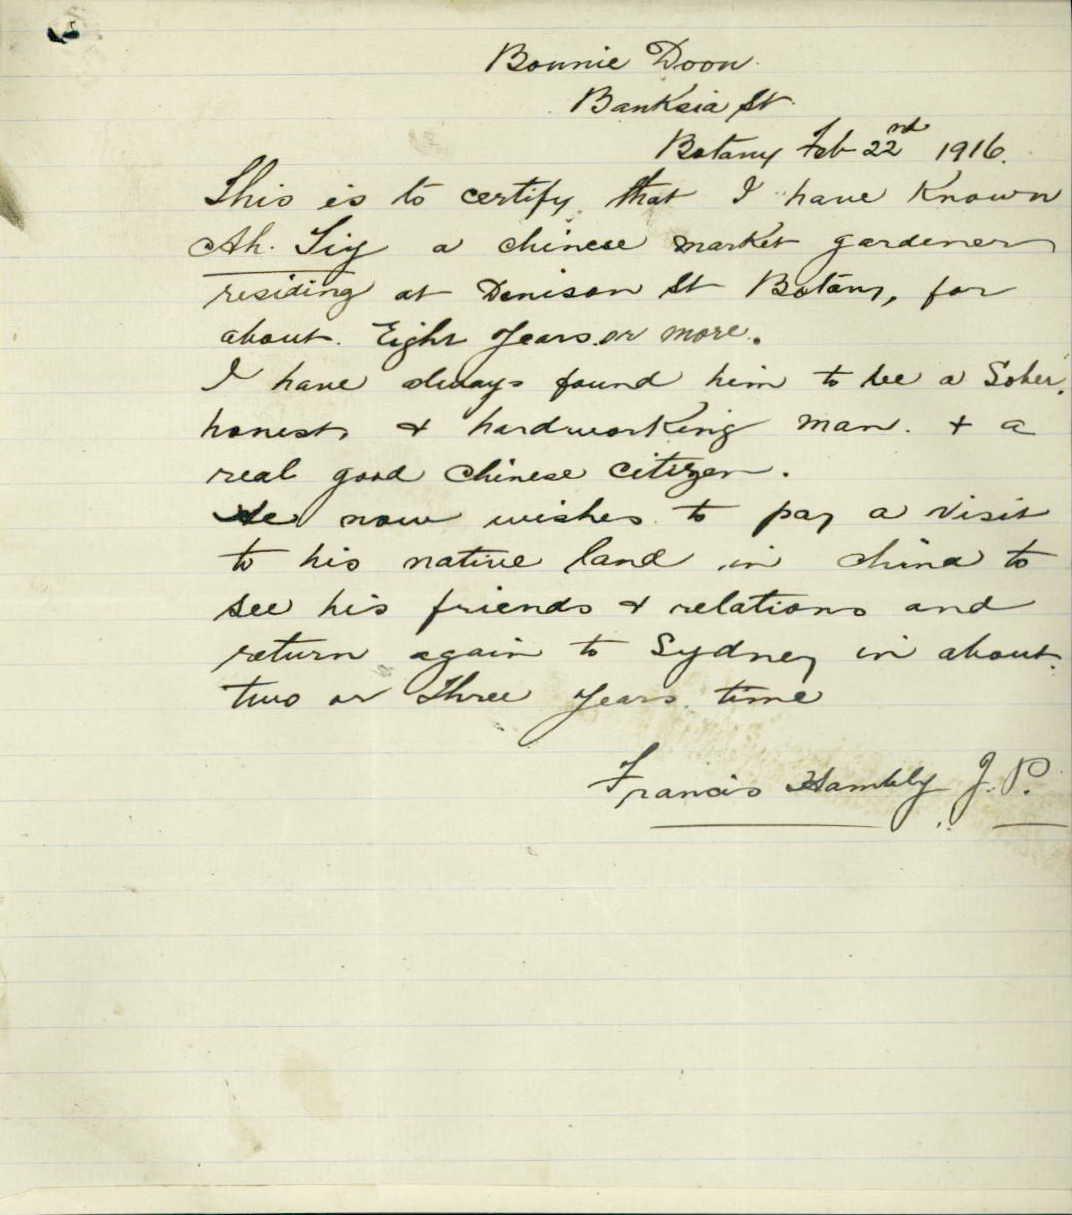 Bonnie Doon
Banksia St
Botany Feb 22nd 1916.
This is to certify that I have known
Ah. Tiy a chinese market gardener
residing at Denison St Botany, for
about. Eight years or more.
I have always found him to be a Sober.
honest, & hardworking man. & a
real good chinese citizen.
He now wishes to pay a visit
to his native land in china to
see his friends & relations and
return again to Sydney in about.
two or three years time
Francis Hambly J.P.